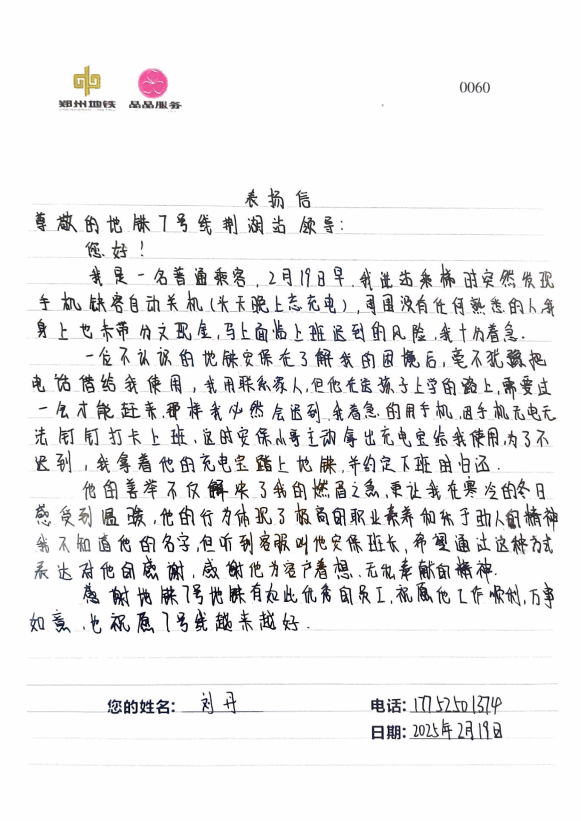 郑州地铁 品品服务
0060
表扬信
尊敬的地铁7号线荆湖站领导：
您好！
我是一名普通乘客，2月19日早，我进站乘梯时突然发现
手机缺电自动关机（头天晚上忘充电），周围没有任何熟悉的人，我
身上也未带分文现金，马上面临上班迟到的风险，我十分着急。
一位不认识的地铁安保在了解我的困境后，毫不犹豫把
电话借给我使用，我用联系家人，但他在送孩子上学的路上，需要过
一会才能赶来，那样我必然会迟到，我着急的用手机，因手机无电无
法钉钉打卡上班，这时安保小哥主动拿出充电宝给我使用，为了不
迟到，我拿着他的充电宝踏上地铁，并约定下班时归还。
他的善举不仅解决了我的燃眉之急，更让我在寒冷的冬日
感受到温暖，他的行为体现了极高的职业素养和乐于助人的精神
我不知道他的名字，但听到客服叫他安保班长，希望通过这种方式
表达对他的感谢，感谢他为客户着想、无私奉献的精神。
感谢地铁7号地铁有如此优秀的员工，祝愿他工作顺利，万事
如意，也祝愿7号线越来越好．
您的姓名： 刘丹
电话：17752501374
日期：2025年2月19日